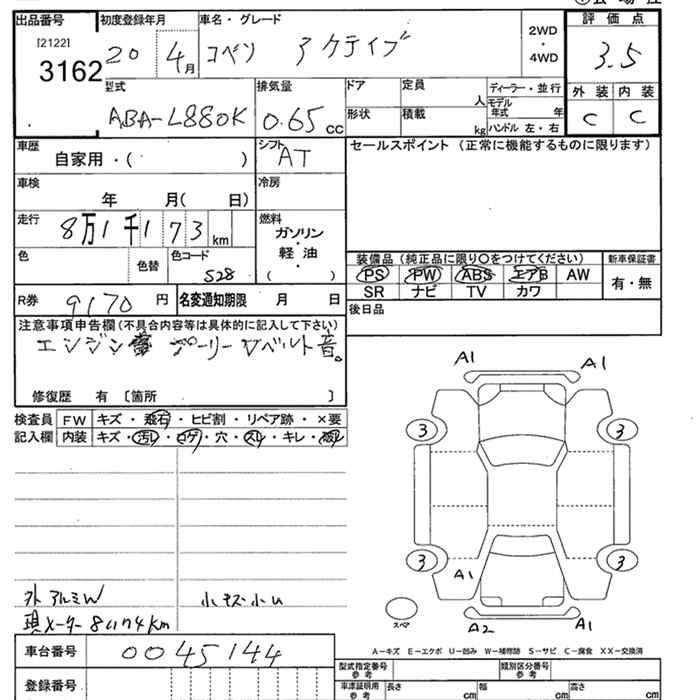 出品番号 初度登録年月 車名・グレード 評価点
[2122]
3162 20 4月 コペン アクティブ 2WD・4WD 3.5
型式 排気量 ドア 定員 人 ディーラー・並行 外装 内装
ABA-L880K 0.65cc 形状 積載 kg モデル年式 年 ハンドル 左・右 C C
車歴 自家用・( ) シフト AT セールスポイント (正常に機能するものに限ります)
車検 年 月( 日) 冷房
走行 8万1千173km 燃料 ガソリン・軽油・( )
色 色替 色コード S28 装備品 (純正品に限り○をつけてください) 新車保証書
PS PW ABS エアB AW 有・無
R券 9170円 名変通知期限 月 日 SR ナビ TV カワ
注意事項申告欄(不具合内容等は具体的に記入して下さい) 後日品
エンジン プーリー ベルト音。
修復歴 有 [箇所 ]
検査員 FW キズ・飛石・ヒビ割・リペア跡・×要
記入欄 内装 キズ・汚レ・コゲ・穴・スレ・キレ・
A1 A1
3 3
3 3
A1
外 アルミW 小キズ小U
現メーター 81174km
スペア A2 A1
A-キズ E-エクボ U-凹み W-補修跡 S-サビ C-腐食 XX-交換済
車台番号 0045144
型式指定番号 参考 類別区分番号 参考
登録番号 車庫証明用 参考 長さ cm 幅 cm 高さ cm